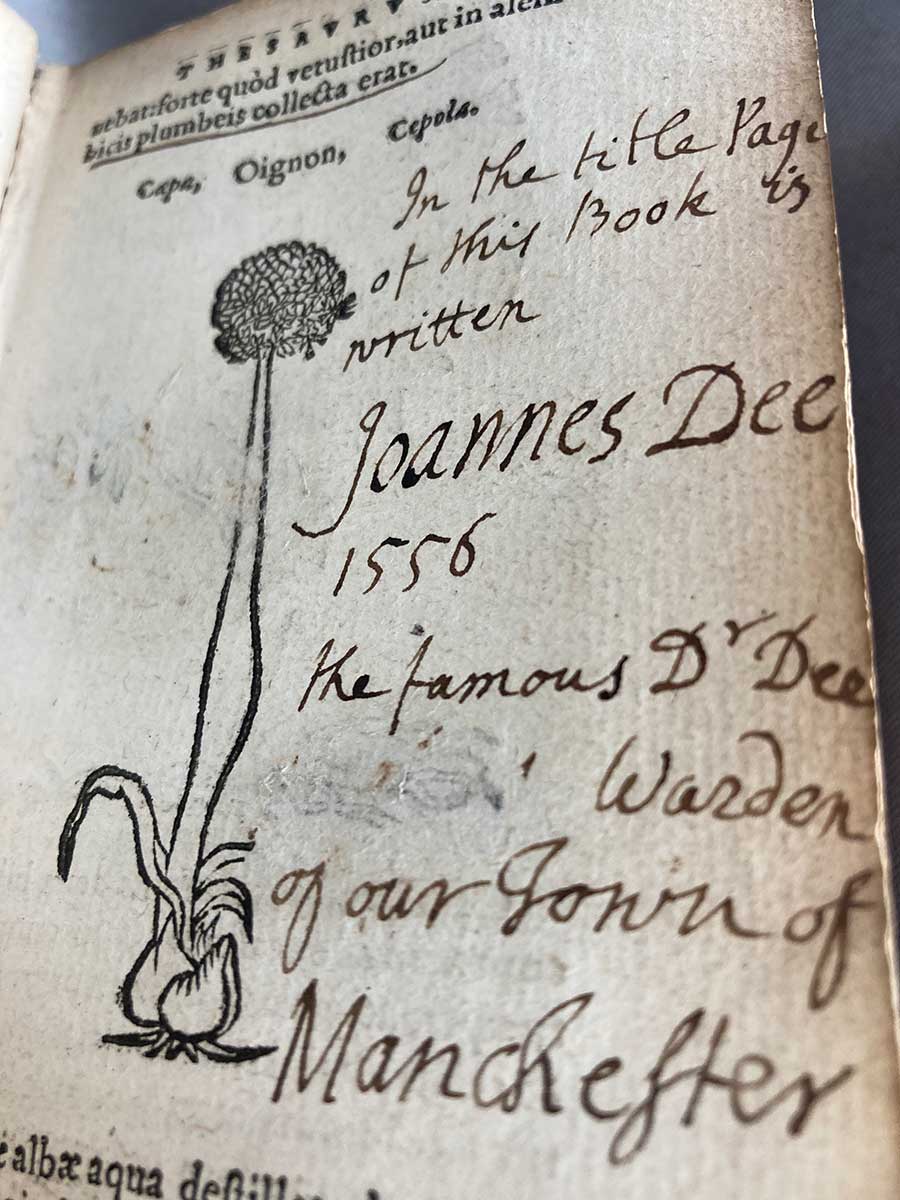 THESAVRV
nebat: forte quòd vetuſtior, aut in alem
bicis plumbeis collecta erat.
Cæpa, Oignon, Cepola.
In the title Page
of this Book is
written
Joannes Dee
1556
the famous Dr Dee
Warden
of our Town of
Mancheſter
albæ aqua deſtill